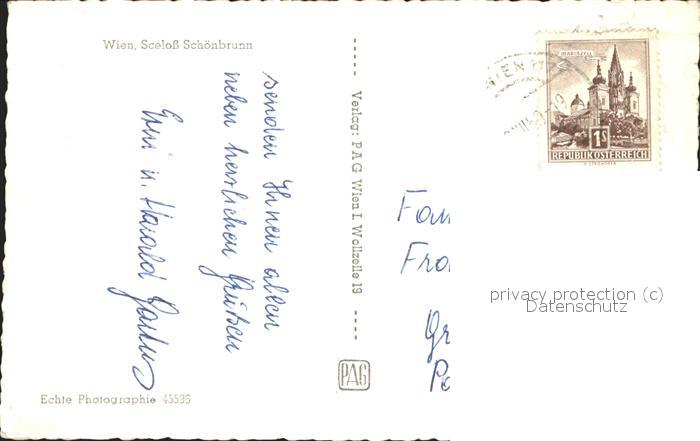 Wien, Sceloß Schönbrunn
senden Ihnen allen
neben herzlichen Grüßen
Emi u. Harald
Verlag: PAG Wien I, Wollzeile 19
PAG
Echte Photographie 45596
WIEN
MARIAZELL
1S
REPUBLIK ÖSTERREICH
Fam
Fra
Gr
privacy protection (c)
Datenschutz